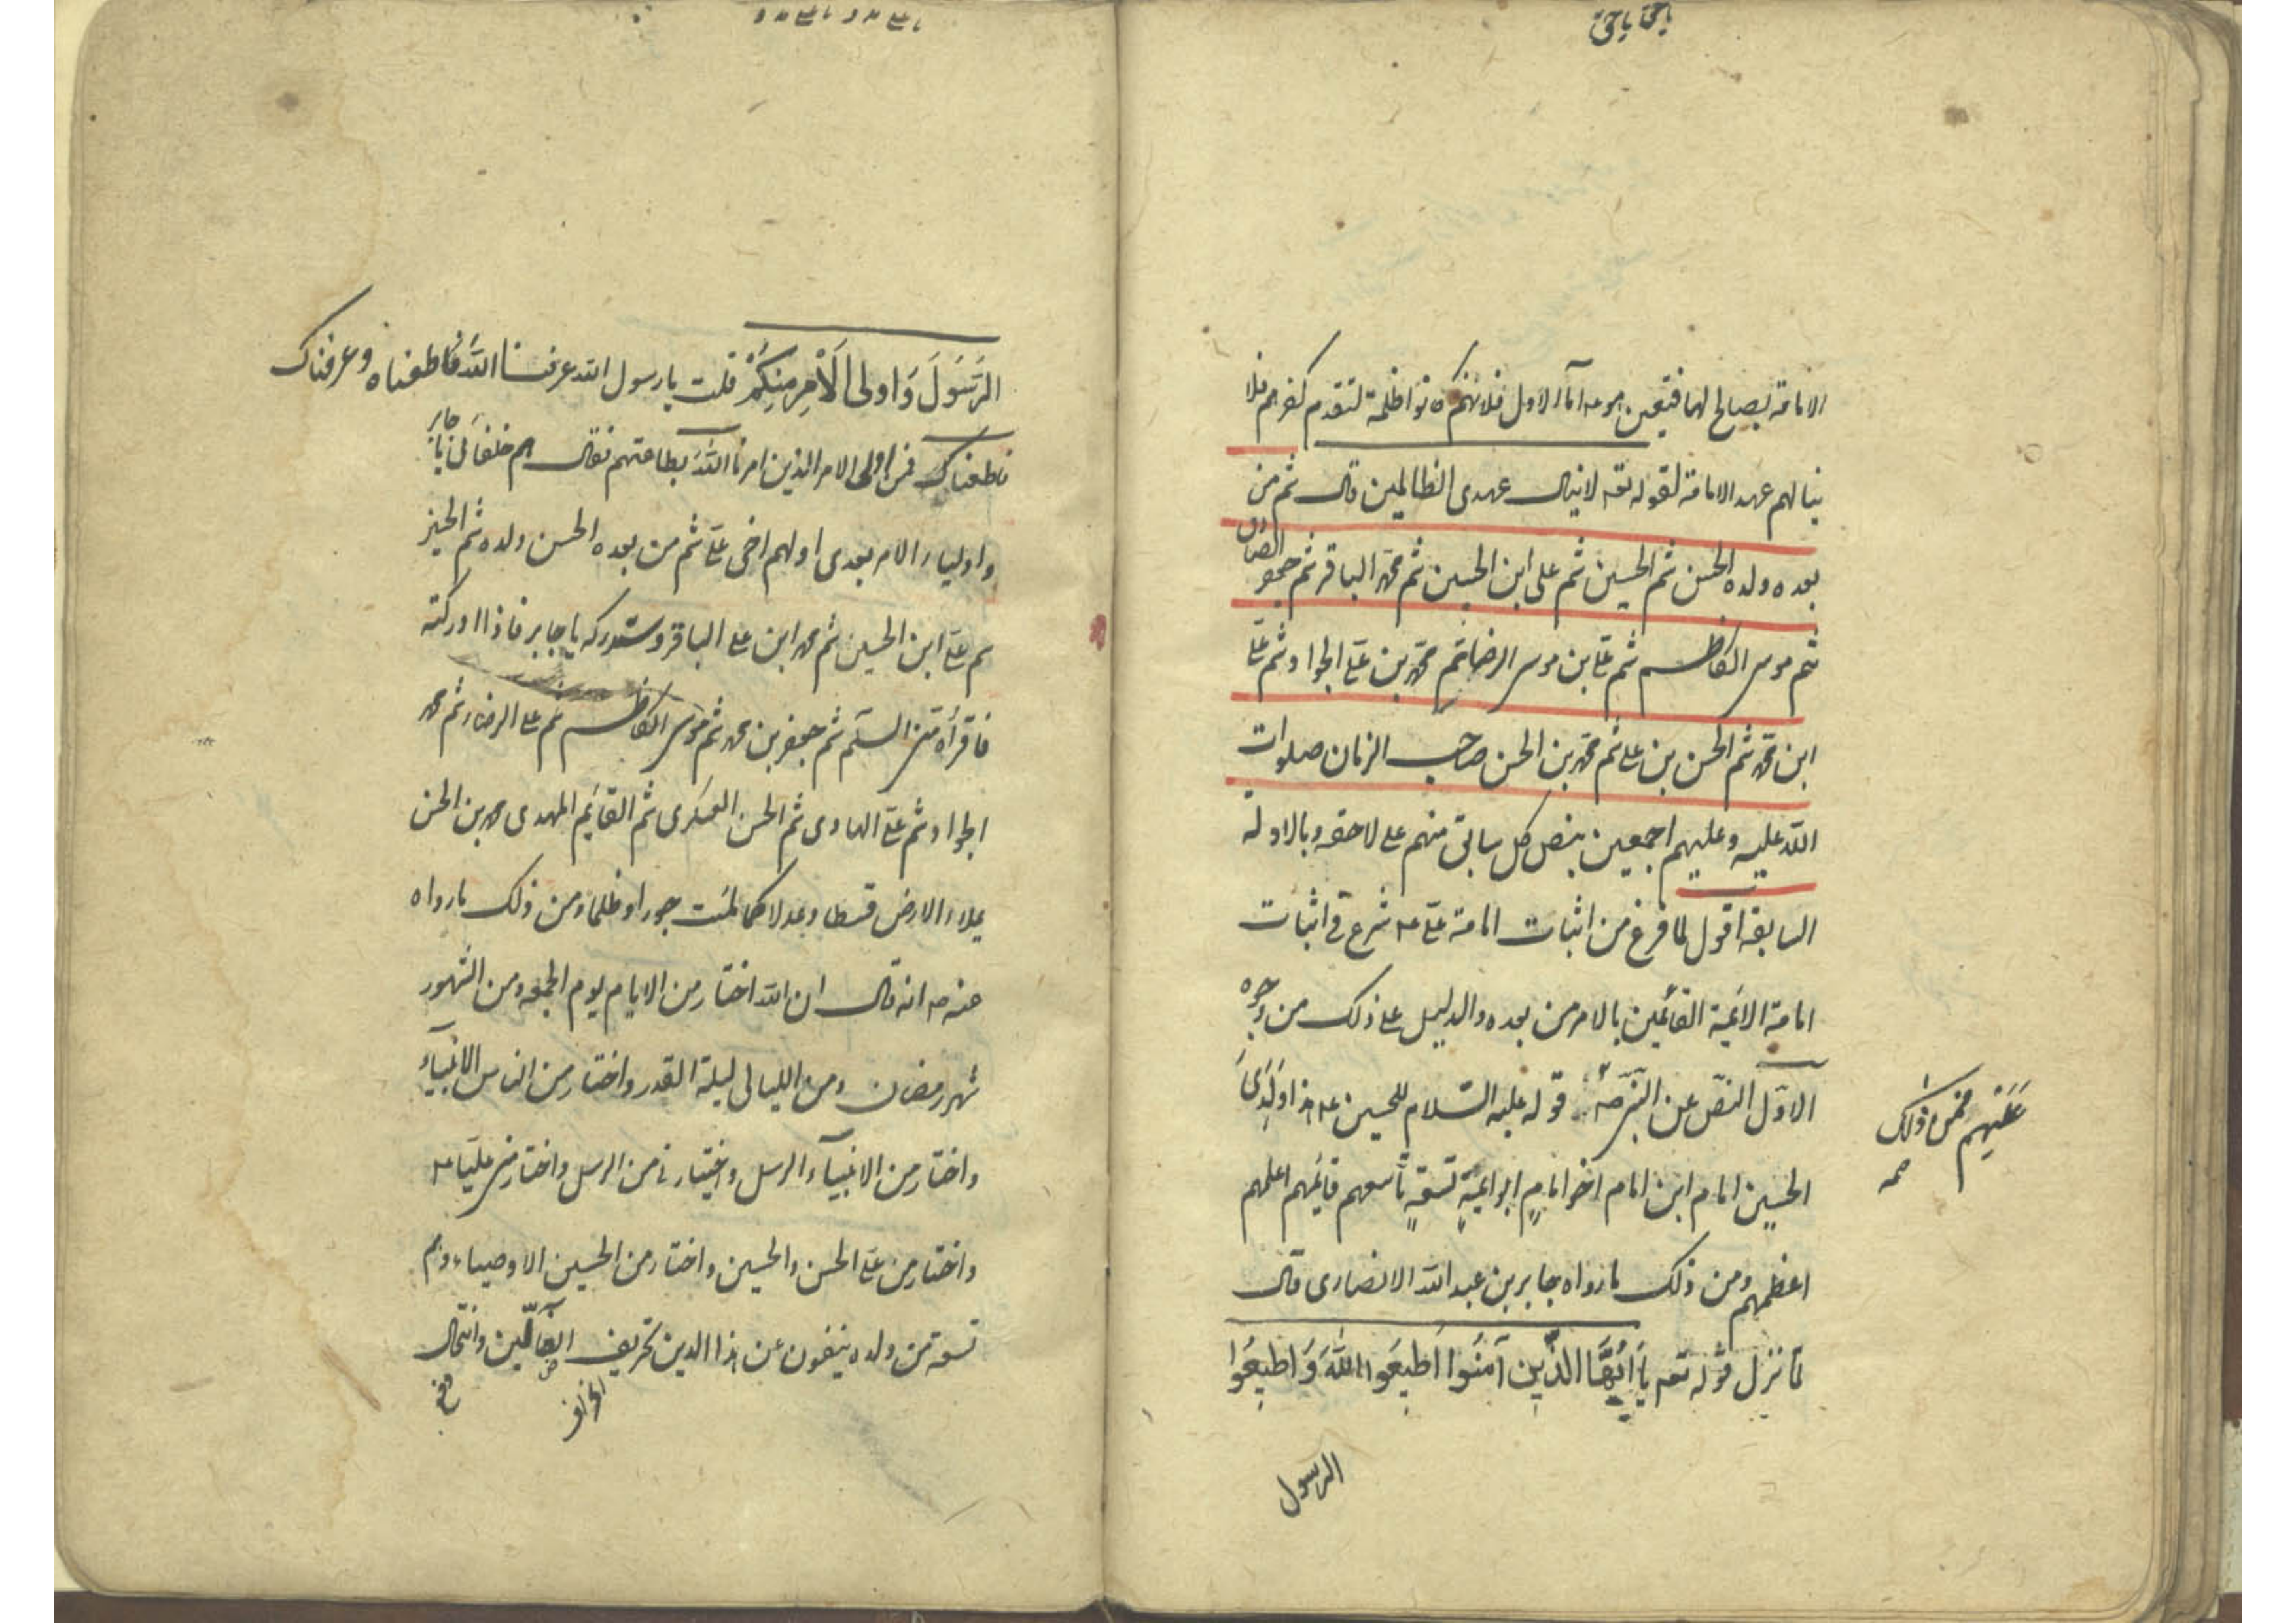 یا حق یا حق
الامامة بصالح لها فتعين هو عه اما الاول فلانهم كانوا ظلمة لتقدم كفرهم فلا
ينالهم عهد الامامة لقوله تعه لا ينال عهدى الظالمين قال ثم من
بعده ولده الحسن ثم الحسين ثم على ابن الحسين ثم محمد الباقر ثم جعفر الصادق
ثم موسى الكاظم ثم على بن موسى الرضا ثم محمد بن على الجواد ثم على
ابن محمد ثم الحسن بن على ثم محمد بن الحسن صاحب الزمان صلوات
الله عليه وعليهم اجمعين بنص كل سابق منهم على لاحقه وبالادلة
السابقة اقول لما فرغ من اثبات امامة على عه شرع فى اثبات
امامة الائمة القائمين بالامر من بعده والدليل على ذلك من وجوه
الاول النص عن النبى صه قوله عليه السلام للحسين عه هذا ولدى
عليهم فمن ذلك
صه
الحسين امام ابن امام اخو امام ابو ائمة تسعة تاسعهم قائمهم اعلمهم
اعظمهم ومن ذلك ما رواه جابر بن عبد الله الانصارى قال
لما نزل قوله تعه يَا أَيُّهَا الَّذِينَ آمَنُوا أَطِيعُوا اللَّهَ وَأَطِيعُوا
الرسول
الرَّسُولَ وَاولى الْأَمْرِ مِنكُمْ قلت يا رسول الله عرفنا الله فاطعناه وعرفناك
فاطعناك فمن اولى الامر الذين امرنا الله بطاعتهم فقال هم خلفائى يا جابر
واولياء الامر بعدى اولهم اخى على ثم من بعده الحسن ولده ثم الحسين
ثم على ابن الحسين ثم محمد ابن على الباقر وستدركه يا جابر فاذا ادركته
فاقرأه منى السلم ثم جعفر بن محمد ثم موسى الكاظم ثم على الرضا ثم محمد
الجواد ثم على الهادى ثم الحسن العسكرى ثم القائم المهدى محمد بن الحسن
يملاء الارض قسطا وعدلا كما ملئت جورا وظلما ومن ذلك ما رواه
عنه صه انه قال ان الله اختار من الايام يوم الجمعه ومن الشهور
شهر رمضان ومن الليالى ليلة القدر واختار من الناس الانبياء
واختار من الانبياء الرسل واختارنى من الرسل واختار منى عليا عه
واختار من على الحسن والحسين واختار من الحسين الاوصياء وهم
تسعة من ولده ينفون عن هذا الدين تحريف الغالين وانتحال